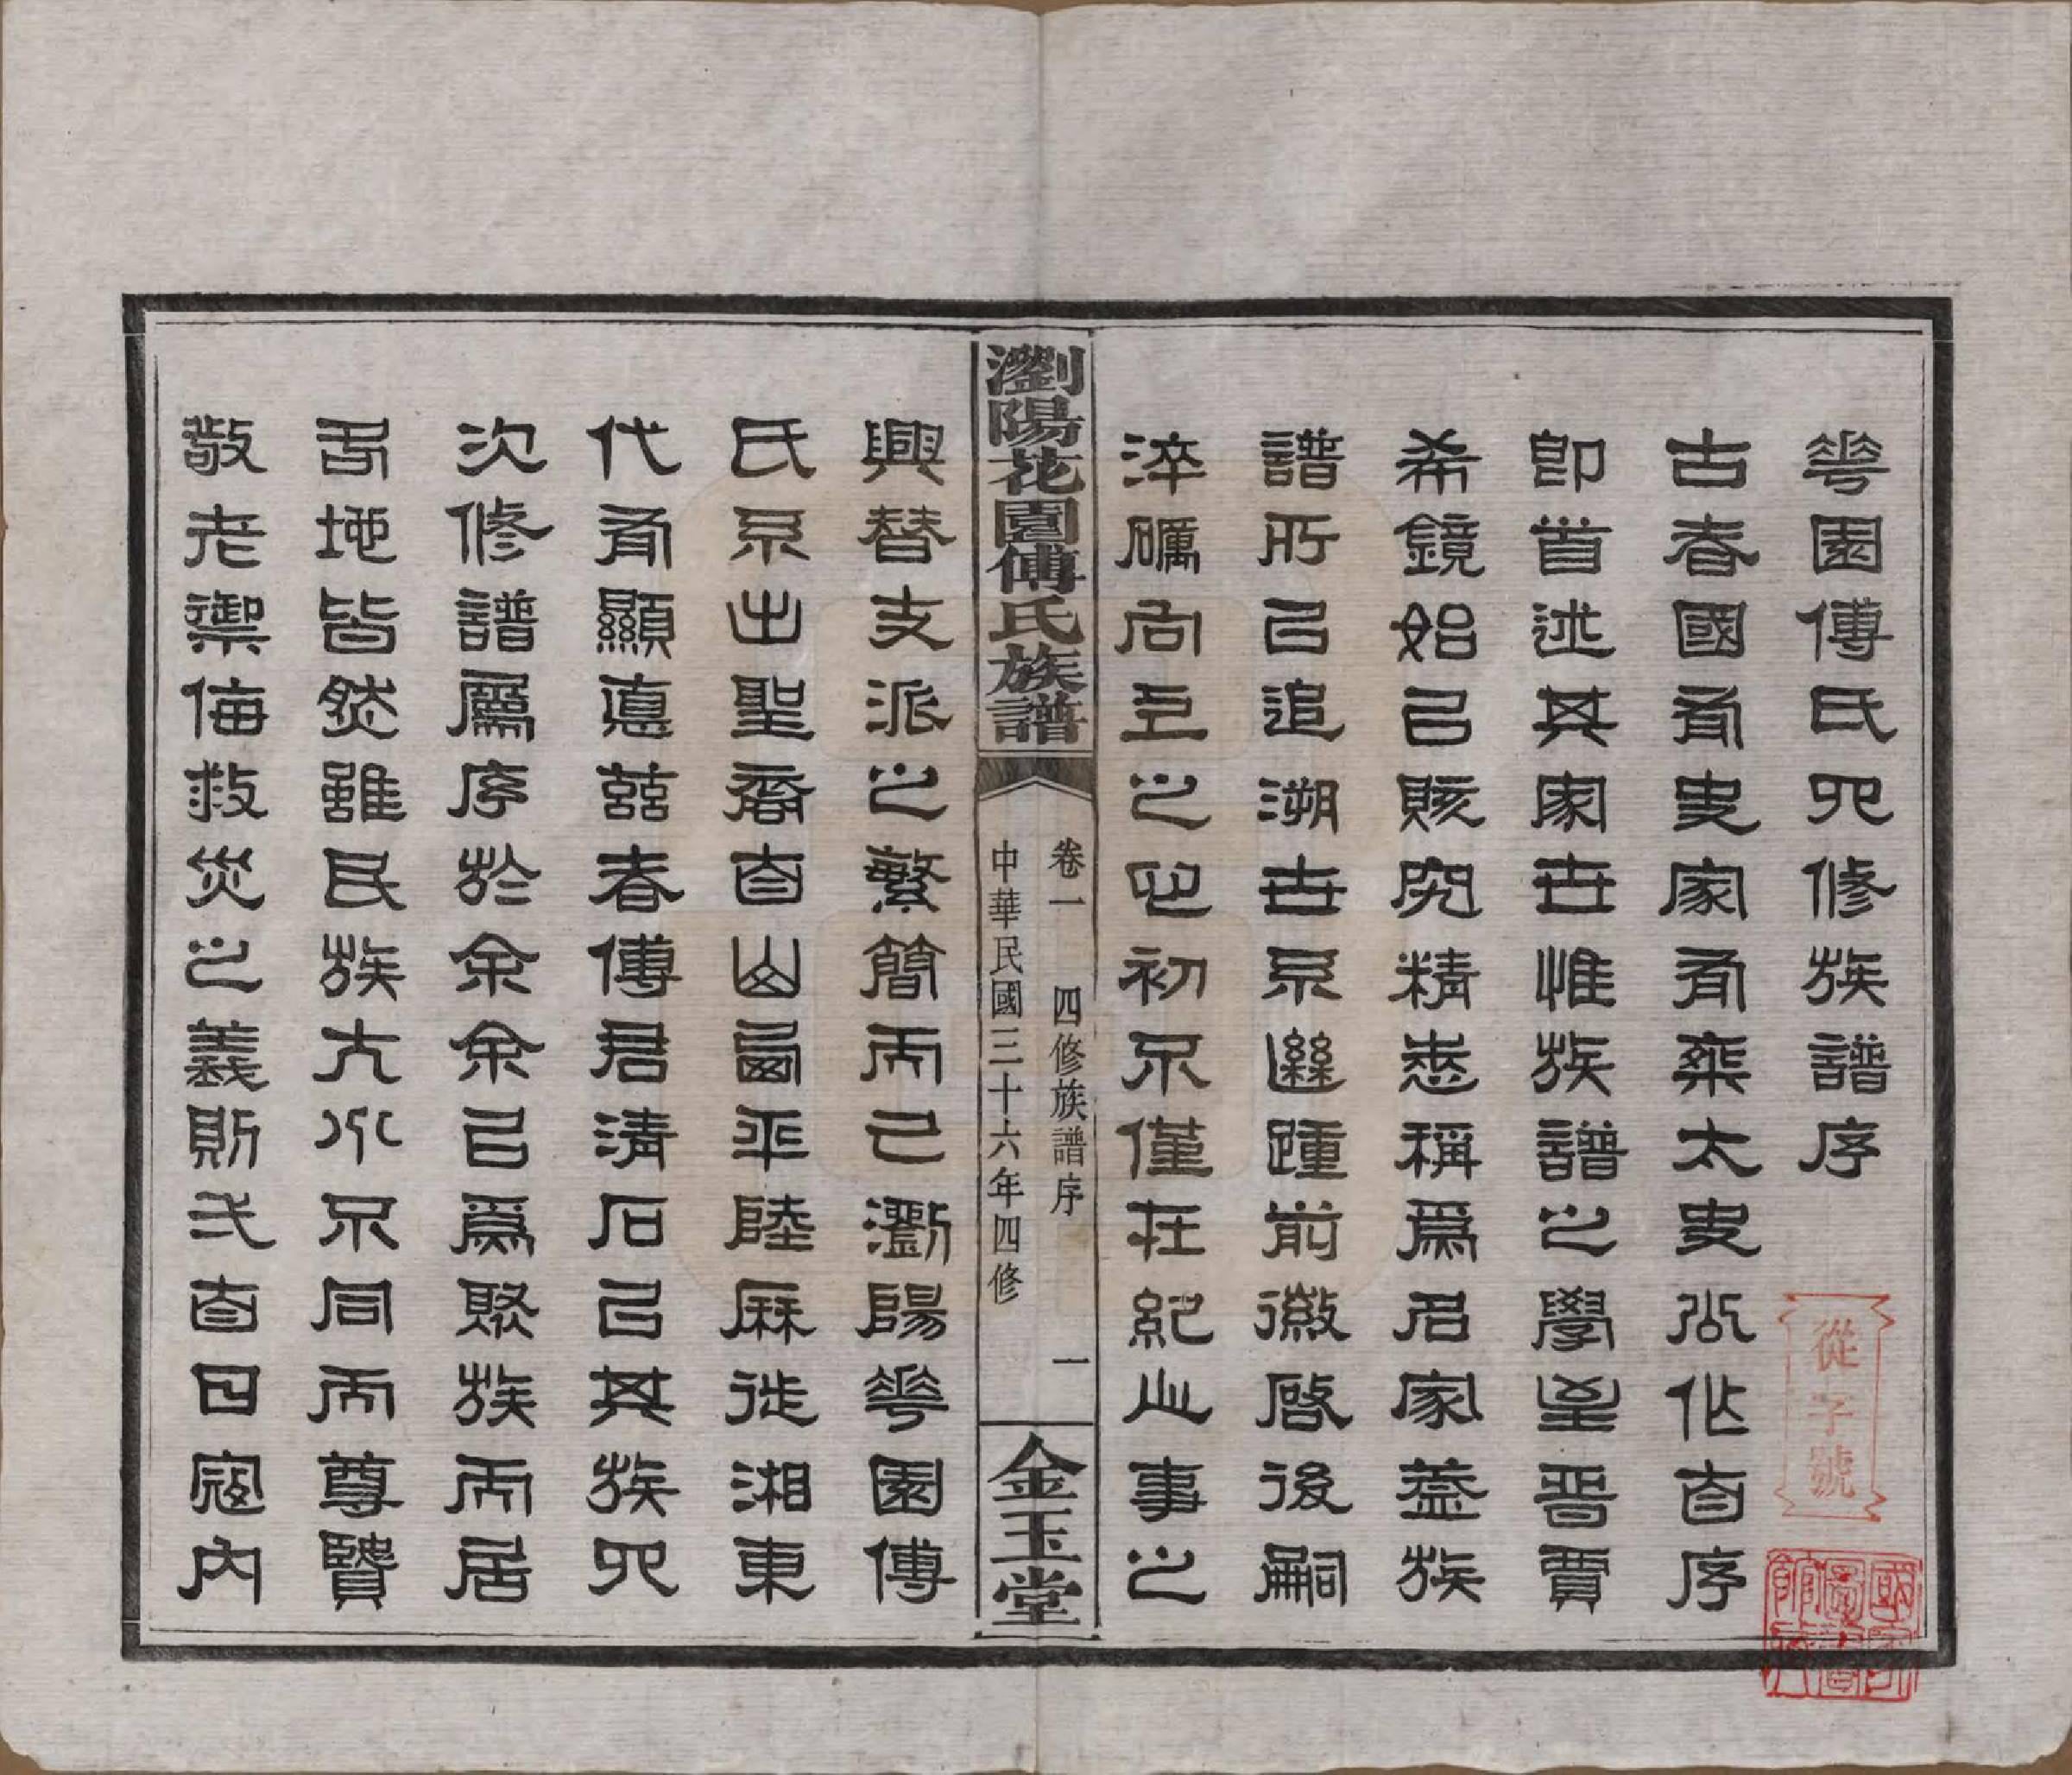 華園傅氏四修族譜序
古者國有史家有乘太史公作自序
即首述其家世惟族譜之學至晉賈
希鏡始以賅究精悉稱爲名家蓋族
譜所以追溯世系繼踵前徽啟後嗣
淬礪向上之心初不僅在紀此事之
興替支派之繁簡而已瀏陽華園傅
氏系出聖裔自山西平陸縣徙湘東
代有顯悳喆者傅君清石以其族四
次修譜屬序於余余以爲聚族而居
各地皆然雖民族大小不同而尊賢
敬老禦侮救災之義則弌自日寇內
瀏陽花園傅氏族譜
卷一 四修族譜序 一
中華民國三十六年四修
金玉堂
從字號